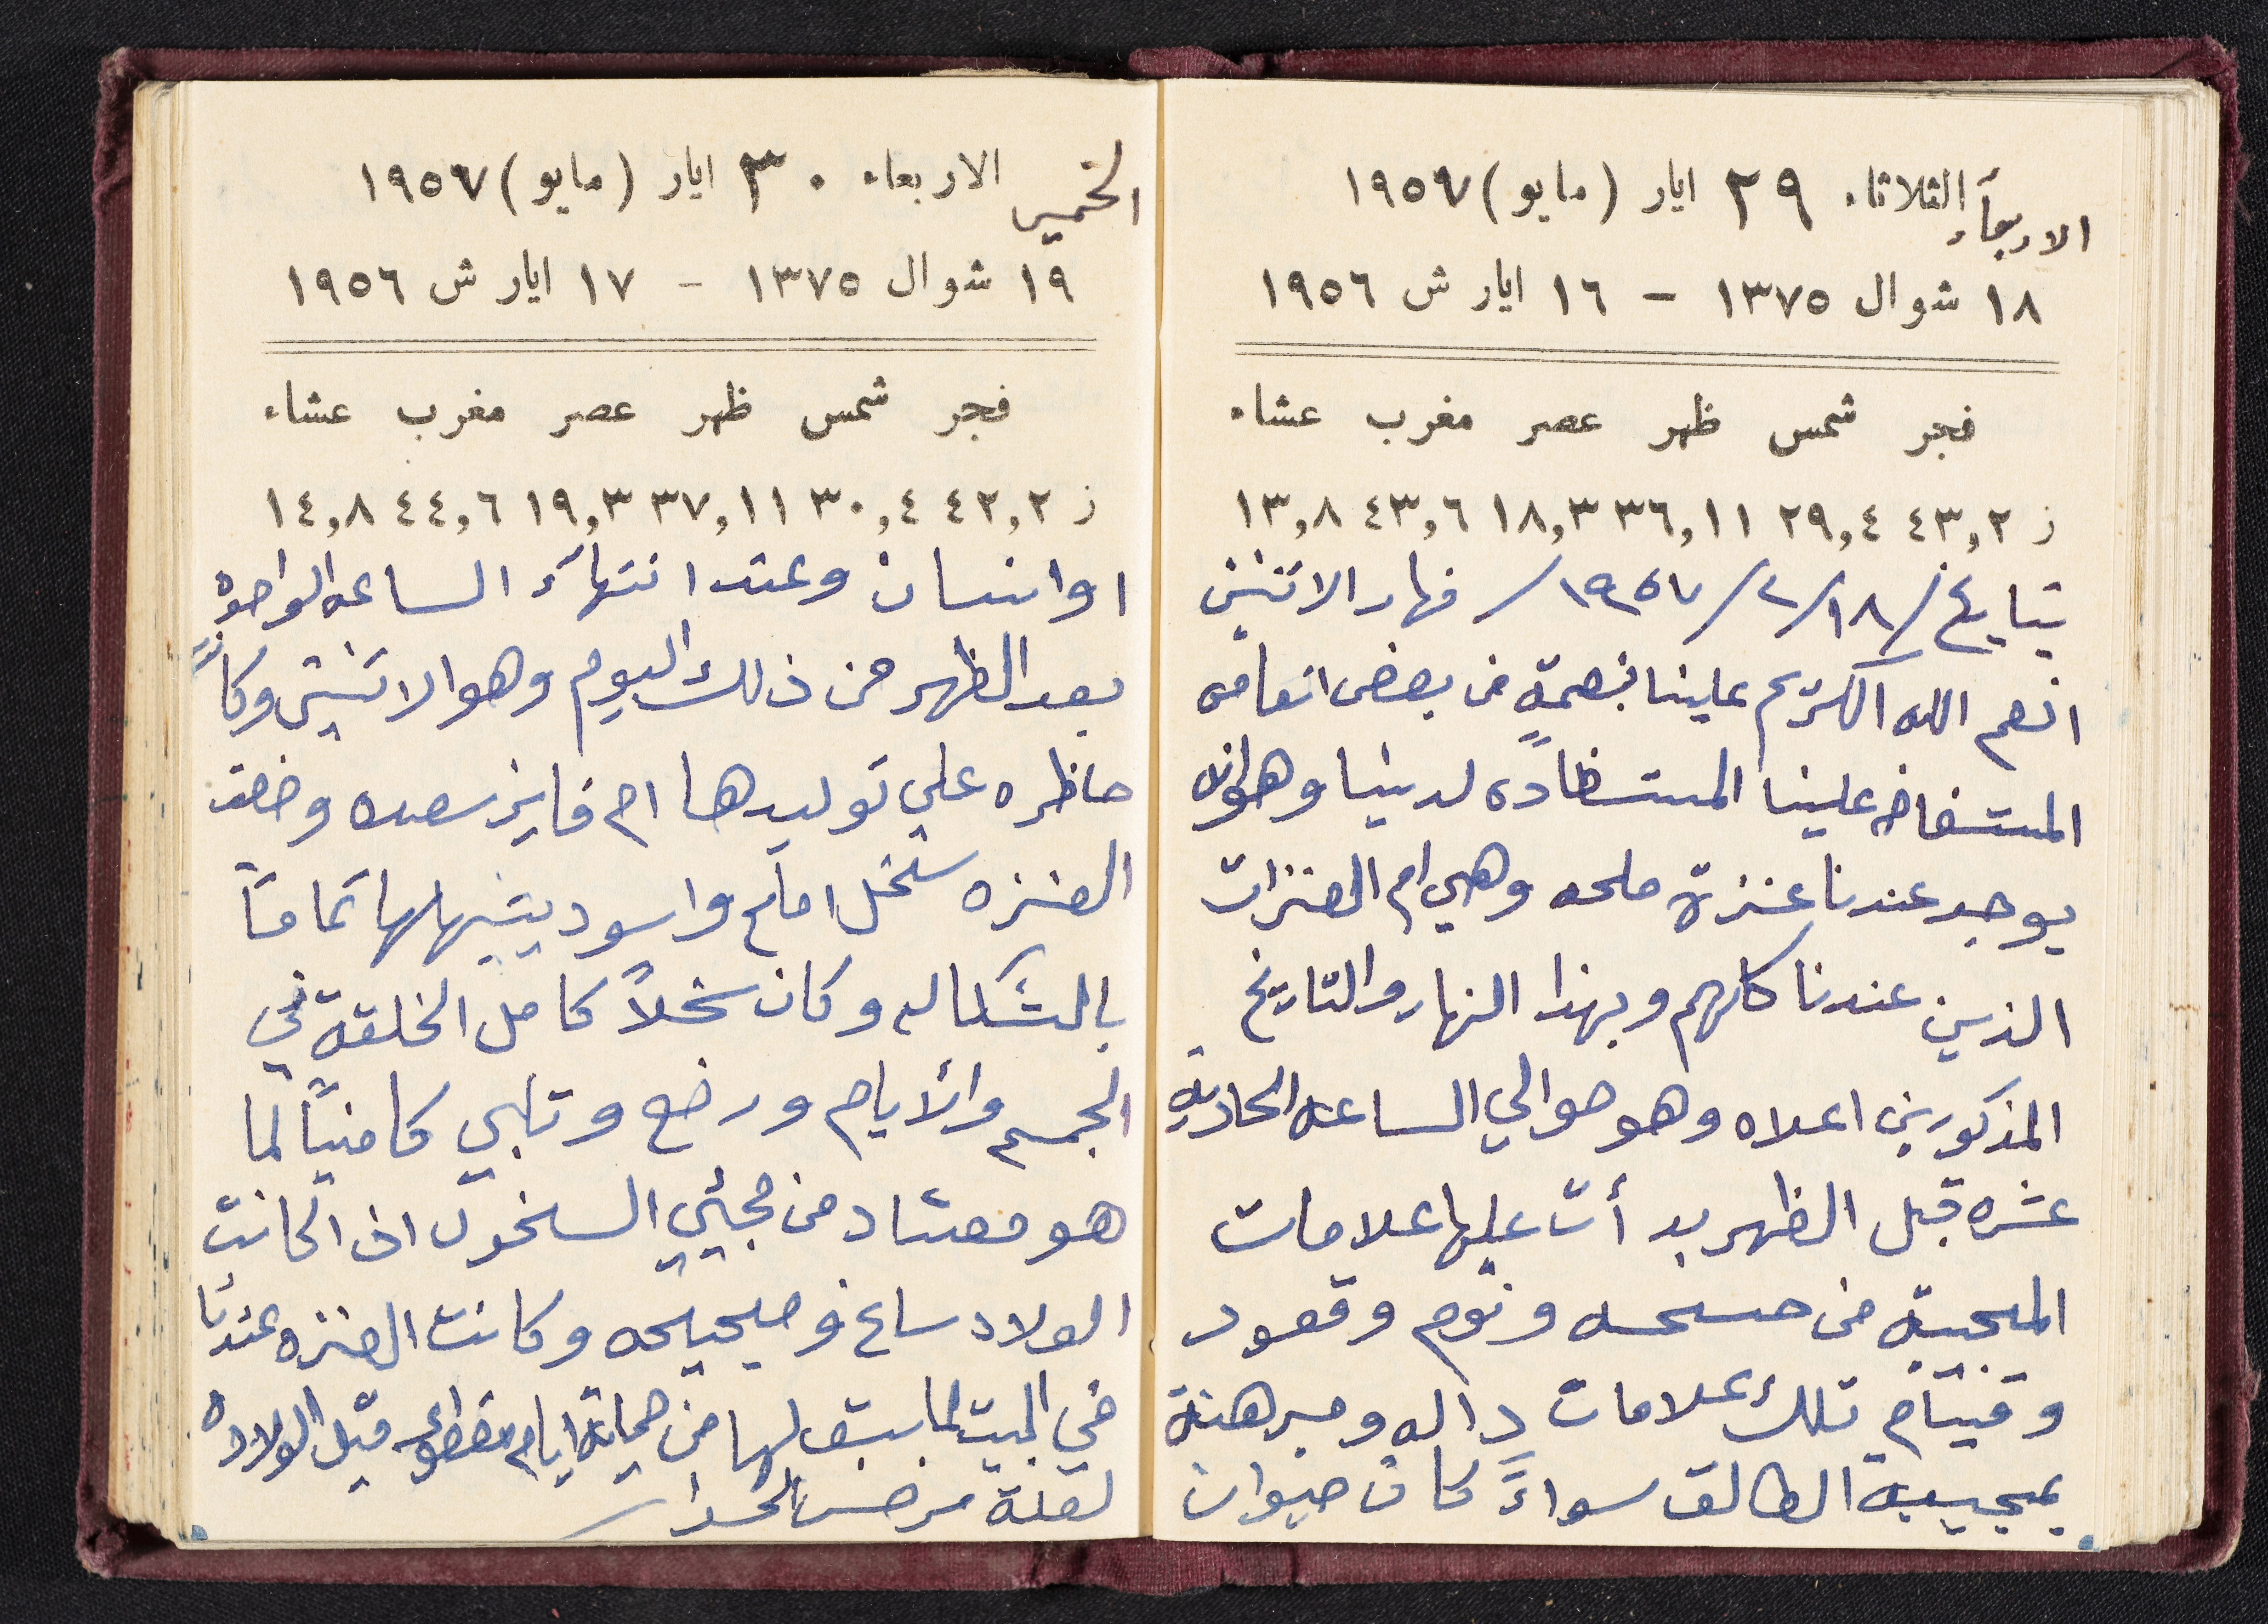 الاربعاء الثلاثاء ٢٩ ايار (مايو) ١٩٥٧
١٨ شوال ١٣٧٥ - ١٦ ايار ش ١٩٥٦
فجر شمس ظهر عصر مغرب عشاء
ز ٤٣,٢ ٢٩,٤ ٣٦,١١ ١٨,٣ ٤٣,٦ ١٣,٨
بتايخ /١٨/٢/١٩٥٧/ نهار الاثنين
انعم الله الكريم علينا بنعمةٍ من بعض انعامه
المستفاضه علينا لدينا وهو انه
يوجد عندنا عنزة ملحه وهي ام العنزات
الذين عندنا كلهم وبهذا النهار والتاريخ
المذكورين اعلاه وهو حوالي الساعه الحاديه
عشره قبل الظهر بدأت عليها علامات
من ونوم وقعود
وقيام تلك علامات داله ومبرهنة
الطالق سواءً كان حيوان
الخميس الاربعاء ٣٠ ايار (مايو) ١٩٥٧
١٩ شوال ١٣٧٥ - ١٧ ايار ش ١٩٥٦
فجر شمس ظهر عصر مغرب عشاء
ز ٤٢,٢ ٣٠,٤ ٣٧,١١ ١٩,٣ ٤٤,٦ ١٤,٨
او انسان وعند انتهاء الساعه الواحده
بعد الظهر من ذلك اليوم وهو الاثنين وكانت
حاظره على توليدها ام فايز سعده وضعت
العنزه سخل املح واسود يشبهلها تماماً
بالشكاله وكان سخلاً كامل الخلقة في
الجسم والأيام ورضع كافياً لما
هو معتاد من مجئي السخول اذا كانت
الولاد ساغ وصحيحه وكانت العنزه عندنا
في البيت لها من ايام قبل الولاده
لقلة مرض